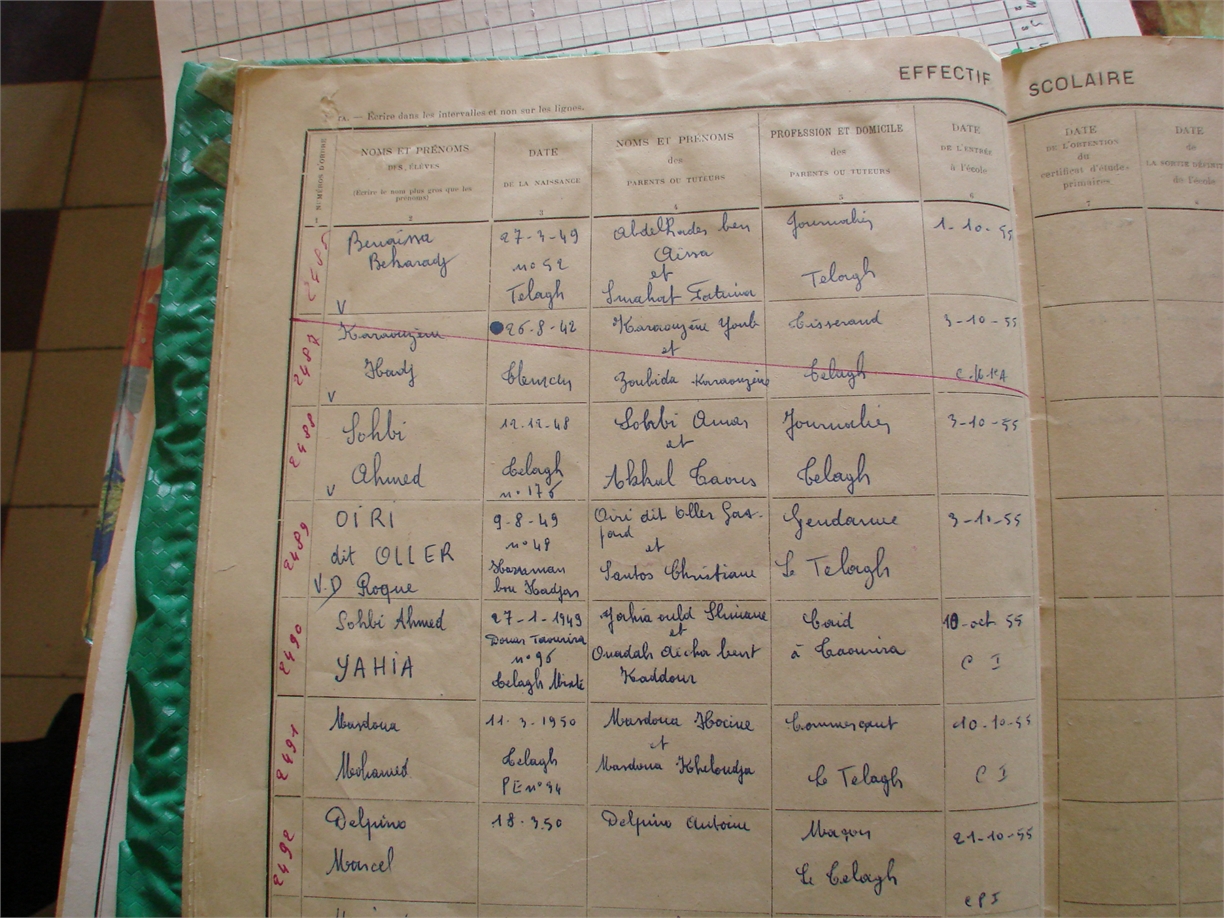 EFFECTIF SCOLAIRE
Écrire dans les intervalles et non sur les lignes.
NUMÉROS D'ORDRE
1
NOMS ET PRÉNOMS
DES ÉLÈVES
(Écrire le nom plus gros que les
prénoms)
2
DATE
DE LA NAISSANCE
3
NOMS ET PRÉNOMS
des
PARENTS OU TUTEURS
4
PROFESSION ET DOMICILE
des
PARENTS OU TUTEURS
5
DATE
DE L'ENTRÉE
à l'école
6
DATE
DE L'OBTENTION
du
certificat d'études
primaires.
7
DATE
de
LA SORTIE DÉFINIT
de l'école
8
Benaissa
27-3-49
n° 52
Telagh
Abdelkader ben
Aissa
et
Smahat Fatima
Journalier
Telagh
1-10-55
V
2487
Karaouzène
Hadj
V
26-8-42
Tlemcen
Karaouzène
et
Zoubida Karaouzène
Tisserand
Telagh
3-10-55
2488
Sohbi
Ahmed
V
12-12-48
Telagh
n° 176
Sohbi Amar
et
Akkul Taous
Journalier
Telagh
3-10-55
2489
OIRI
dit OLLER
V.D Roque
9-8-49
n° 48
Hassman
bou Hadjar
Oiri dit Oller
et
Santos Christiane
Gendarme
Le Telagh
3-10-55
2490
Sohbi Ahmed
YAHIA
27-1-1949
Douar Taouira
n° 96
Telagh Mixte
Yahia ould Slimane
et
Ouadah Aicha bent
Kaddour
Caid
à Taouira
10-oct 55
C I
2491
Masdoua
Mohamed
11-3-1950
Telagh
PE n° 94
Masdoua Hocine
et
Masdoua Kheloudja
Commerçant
Le Telagh
10-10-55
C I
2492
Delpino
Marcel
18-3.50
Delpino Antoine
Maçon
Le Telagh
21-10-55
CPI